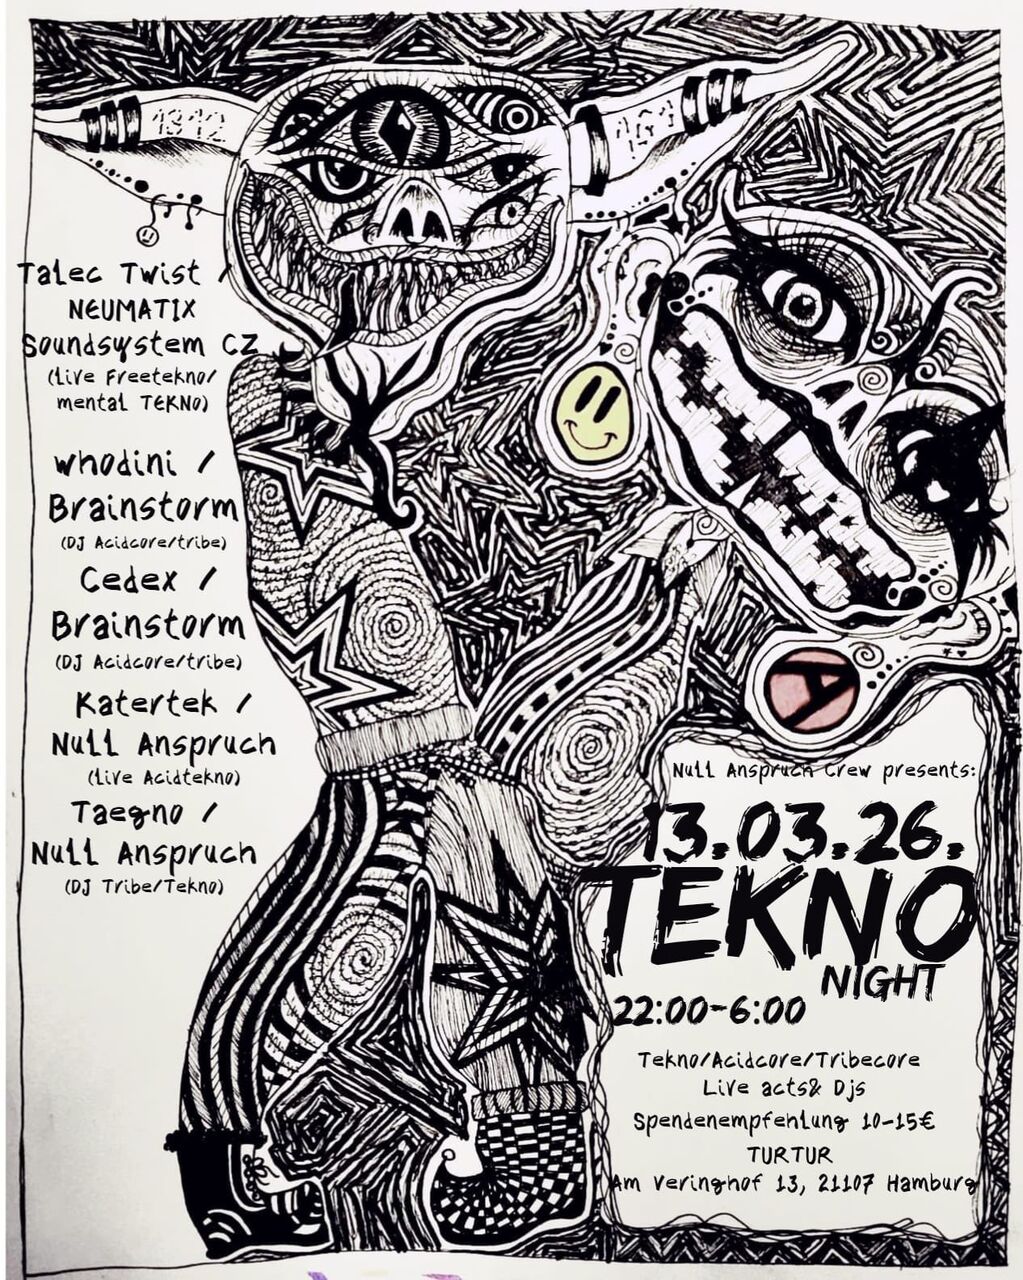 1312
Talec Twist /
NEUMATIX
Soundsystem CZ
(live Freetekno/
mental TEKNO)
whodini /
Brainstorm
(DJ Acidcore/tribe)
Cedex /
Brainstorm
(DJ Acidcore/tribe)
Katertek /
Null Anspruch
(live Acidtekno)
Taegno /
Null Anspruch
(DJ Tribe/Tekno)
Null Anspruch Crew presents:
13.03.26.
TEKNO
NIGHT
22:00-6:00
Tekno/Acidcore/Tribecore
Live acts& Djs
Spendenempfehlung 10-15€
TURTUR
Am Veringhof 13, 21107 Hamburg